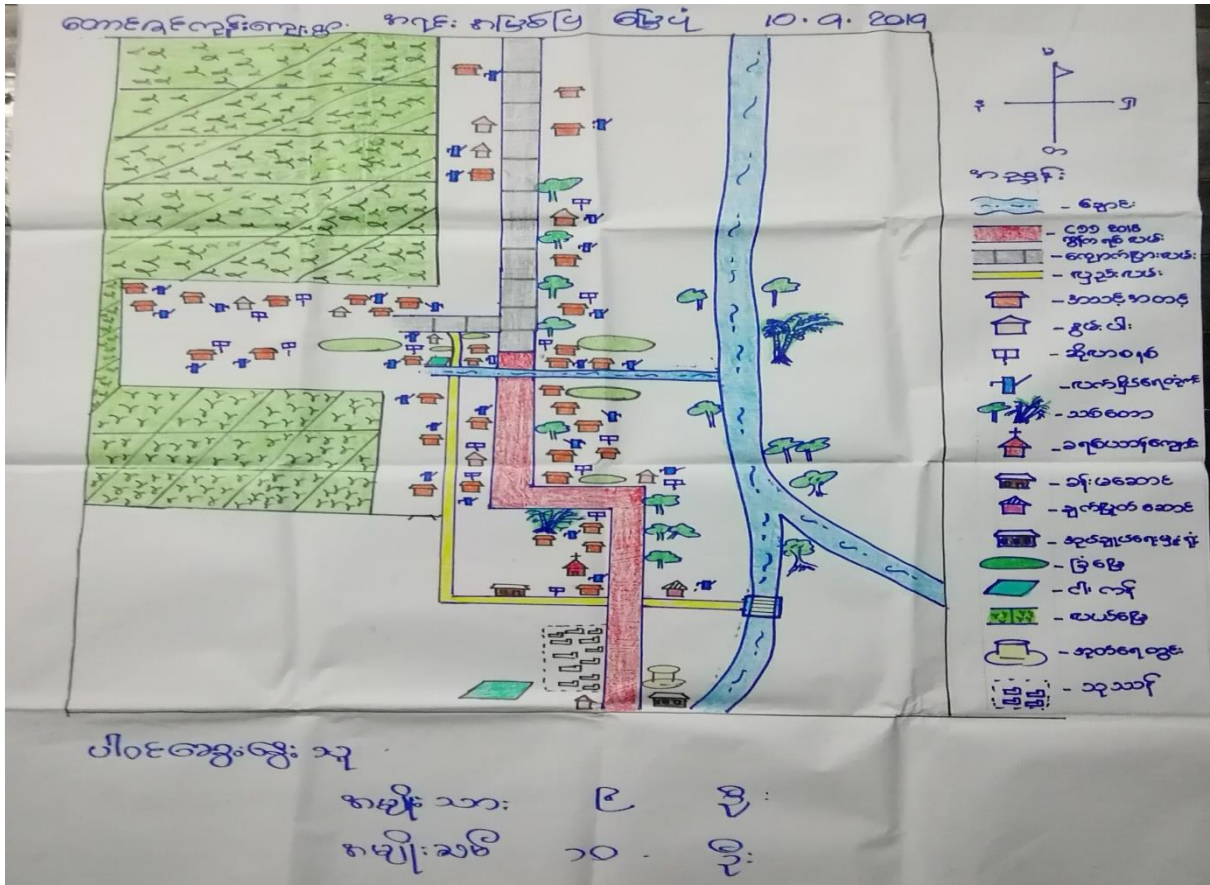 တောင်ခင်ကုန်းကျေးရွာ အရင်းအမြစ်ပြ မြေပုံ 10.9.2019
မ
န
တ
အညွှန်း
- ချောင်း
- ၄၁၁ 2018 ကွန်ကရစ်လမ်း
- ကျောက်ပြားလမ်း
- လှည်းလမ်း
- အသင့်အတင့်
- နွမ်းပါး
- ဆိုလာစနစ်
- လက်နှိပ်ရေတုံကင်
- သစ်တော
- ခရစ်ယာန်ကျောင်း
- ခန်းမဆောင်
- ချက်ပြုတ်ဆောင်
- အုပ်ချုပ်ရေးမှူးရုံး
- ခြံမြေ
- ငါးကန်
- လယ်မြေ
- အုတ်ရေတွင်း
- သုဿန်
ပါဝင်ဆွေးနွေးသူ
အမျိုးသား ၉ ဦး
အမျိုးသမီး ၁၀ ဦး